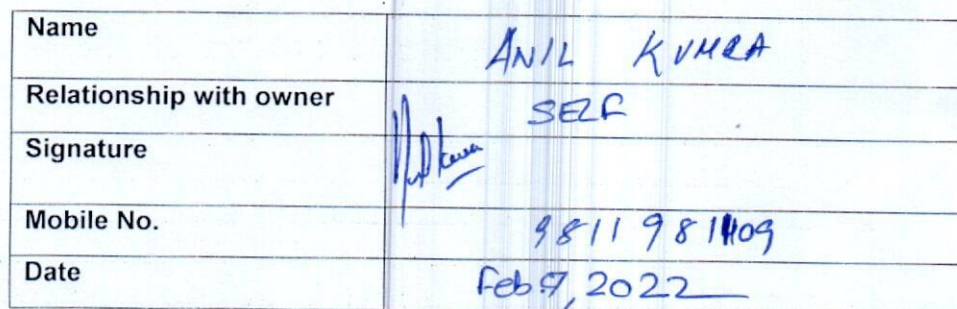 Name ANIL KUMRA
Relationship with owner SELF
Signature
Mobile No.
Date Feb 7, 2022